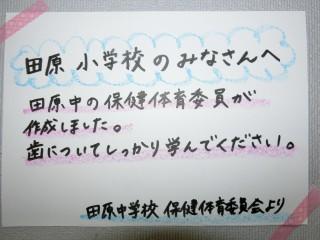 田原小学校のみなさんへ
田原中の保健体育委員が
作成しました。
歯についてしっかり学んでください。
田原中学校 保健体育委員会より